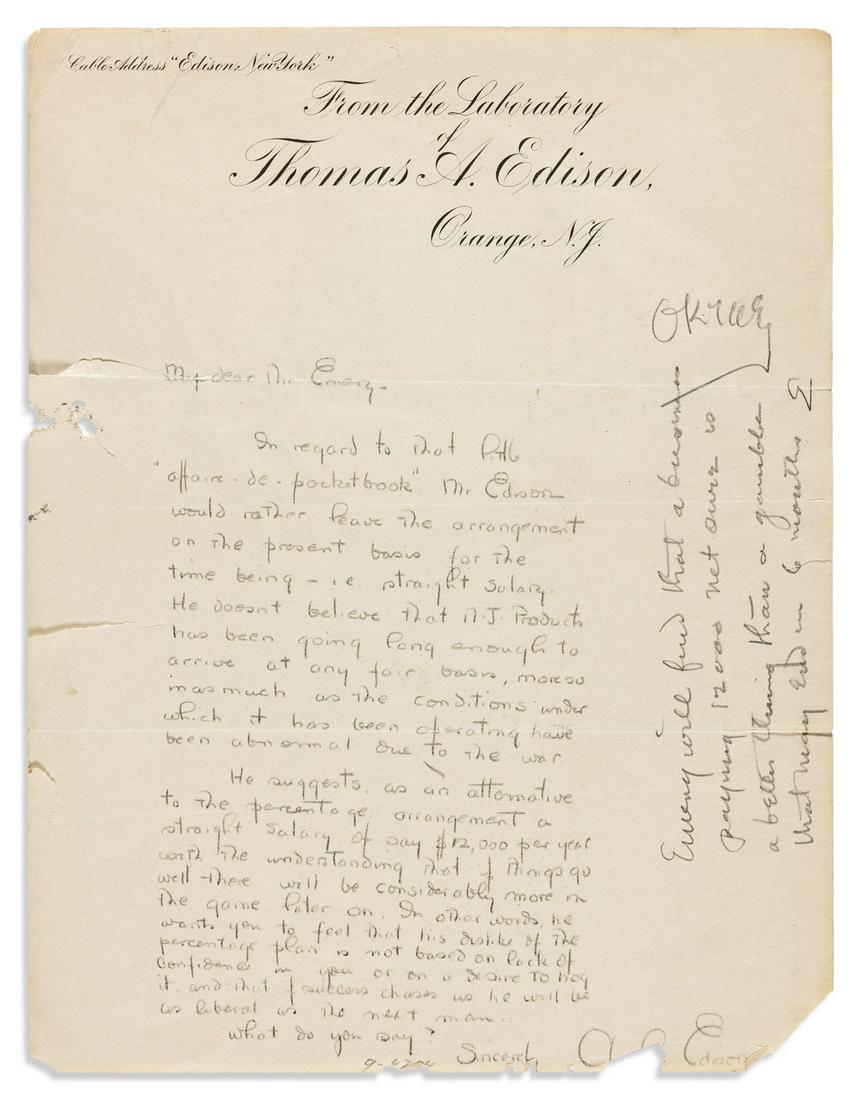 Cable Address "Edison, New York"
From the Laboratory
of
Thomas A. Edison,
Orange, N.J.
My dear Mr. Emery-
In regard to that little
"affaire-de-pocketbook" Mr Edison
would rather leave the arrangement
on the present basis for the
time being - i.e. straight salary.
He doesn't believe that N.J. Products
has been going long enough to
arrive at any fair basis, moreso
inasmuch as the conditions under
which it has been operating have
been abnormal due to the war.
He suggests, as an alternative
to the percentage arrangement a
straight salary of say $12,000 per year
with the understanding that if things go
well there will be considerably more in
the game later on. In other words, he
wants you to feel that his dislike of the
percentage plan is not based on lack of
confidence in you or on a desire to hog
it, and that if success chases us he will be
as liberal as the next man.
What do you say?
Sincerely
Edison
OK TAE
Emery will find that a business
paying 12000 net sure is
a better thing than a gamble
that may end in 6 months E